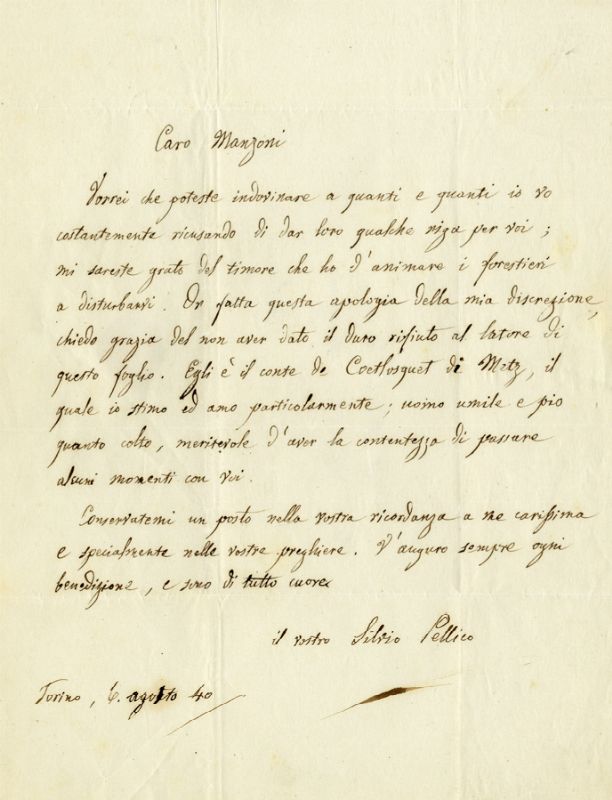 Caro Manzoni
Vorrei che poteste indovinare a quanti e quanti io vo
costantemente ricusando di dar loro qualche riga per voi;
mi sareste grato del timore che ho d'animare i forestieri
a disturbarvi. Or fatta questa apologia della mia discrezione,
chiedo grazia del non aver dato il duro rifiuto al latore di
questo foglio. Egli è il conte de Coetlosquet di Metz, il
quale io stimo ed amo particolarmente; uomo umile e pio
quanto colto, meritevole d'aver la contentezza di passare
alcuni momenti con voi.
Conservatemi un posto nella vostra ricordanza a me carissima
e specialmente nelle vostre preghiere. V'auguro sempre ogni
benedizione, e sono di tutto cuore
il vostro Silvio Pellico
Torino, 6. agosto 40